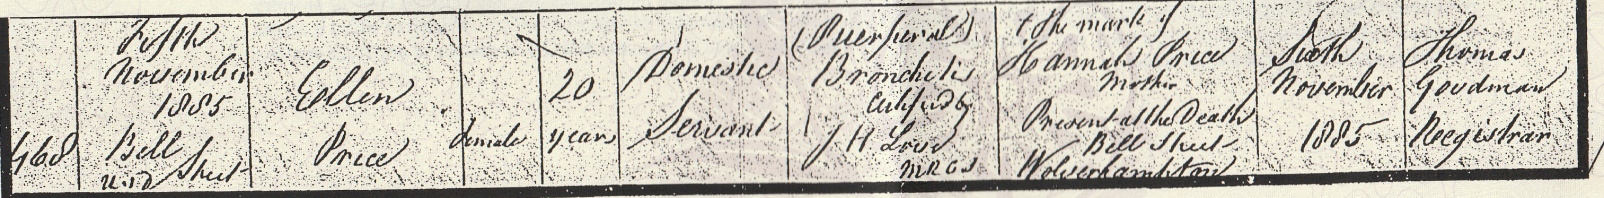 468
Fifth
November
1885
Bell
Street
U.S.D
Ellen
Price
Female
20
years
Domestic
Servant
(Puerperal)
Bronchitis
Certified by
J H Love
MRCS
X The mark of
Hannah Price
Mother
Present at the Death
Bell Street
Wolverhampton
Sixth
November
1885
Thomas
Goodman
Registrar